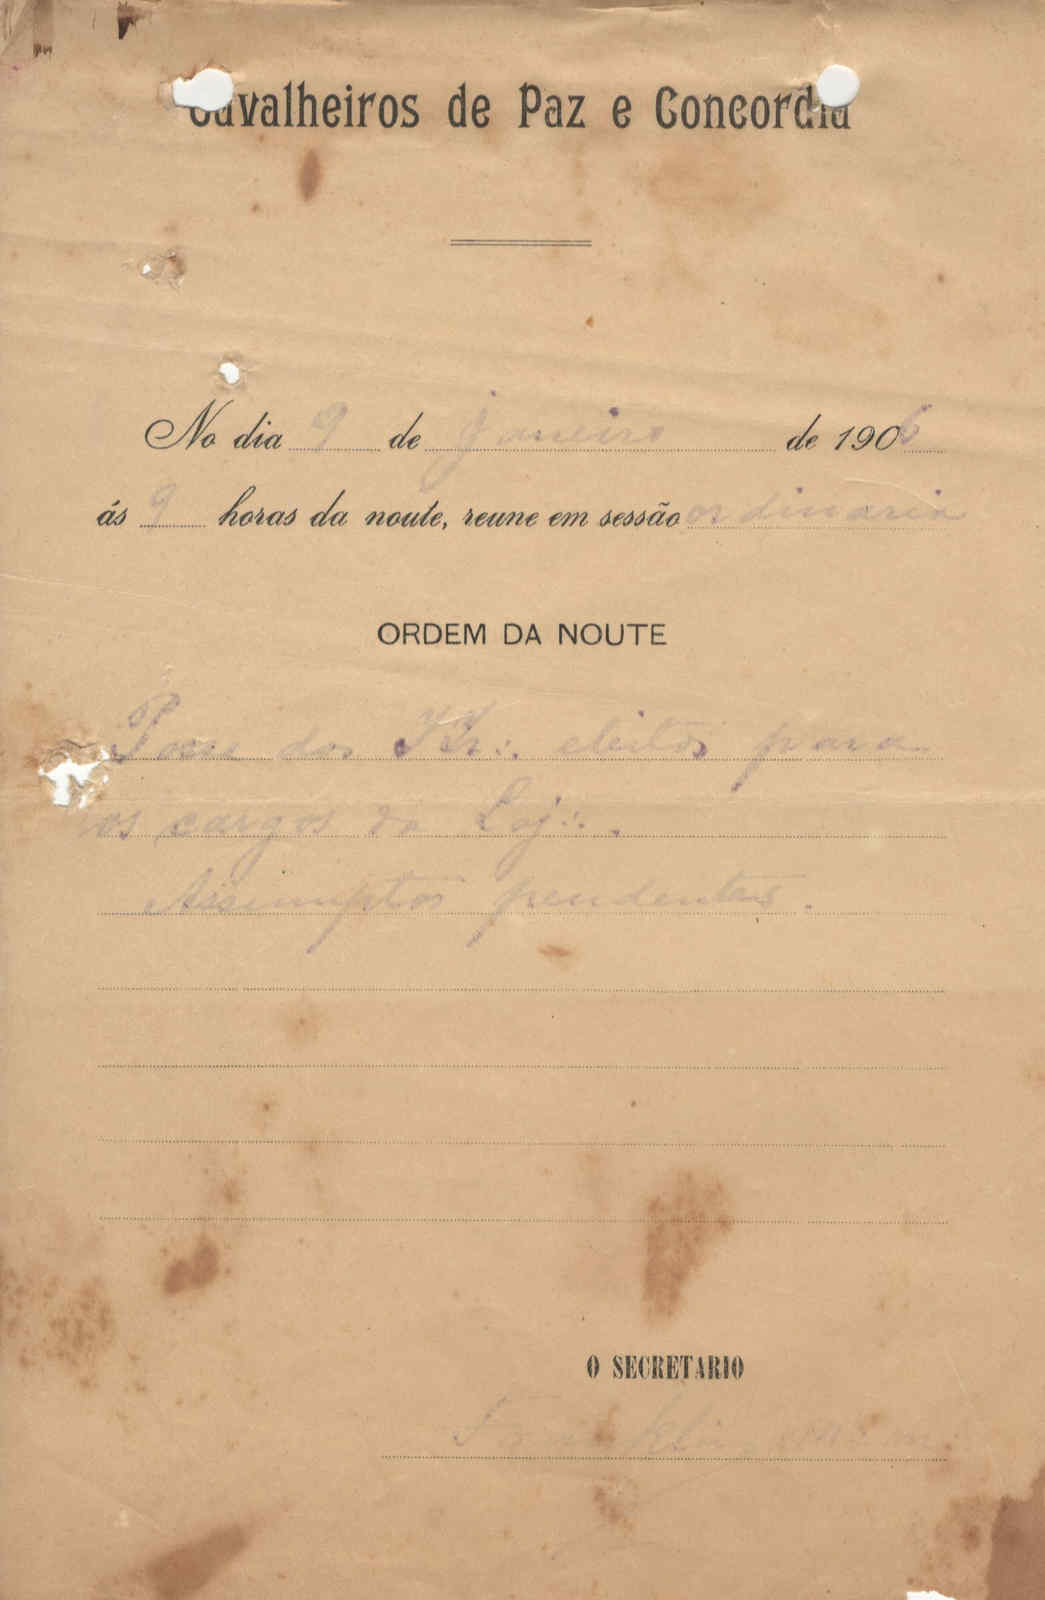 Cavalheiros de Paz e Concordia
No dia 9 de janeiro de 1906
ás 9 horas da noute, reune em sessão ordinaria
ORDEM DA NOUTE
Posse dos IIr∴ eleitos para
os cargos da Loj∴.
Assumptos pendentes.
O SECRETARIO
Franklin